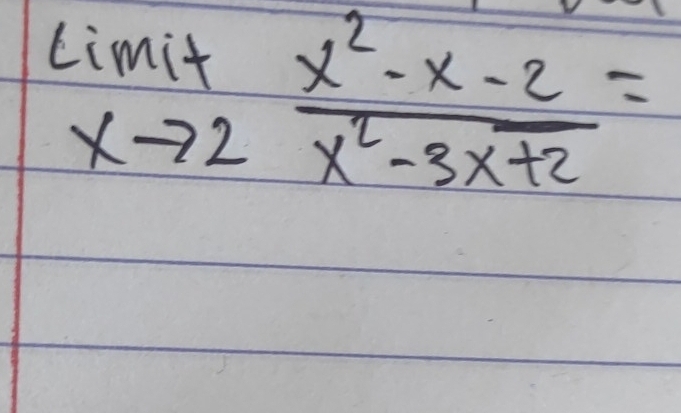 Limit x² - x - 2 =
x→2 x² - 3x + 2